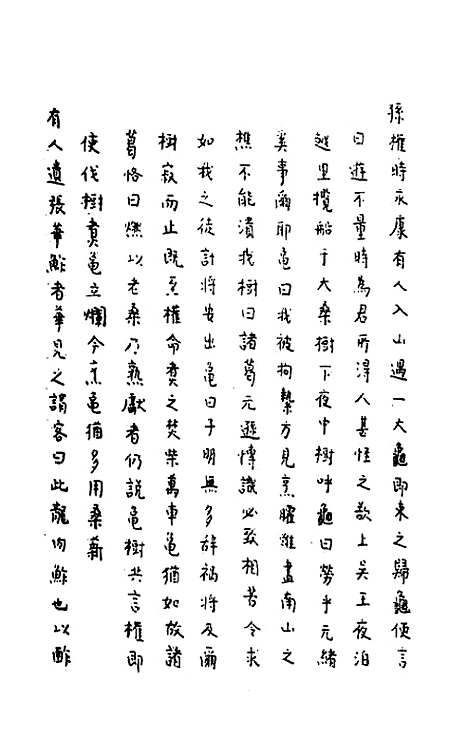 孫權時永康有人入山遇一大龜即束之歸龜便言
曰遊不量時為君所得人甚怪之載上吴王夜泊
越里攬船于大桑樹下夜中樹呼龜曰勞乎元緒
奚事爾耶龜曰我被拘縶方見烹臛雖盡南山之
樵不能潰我樹曰諸葛元遜博識必致相苦令求
如我之徒計將安出龜曰子明無多辞禍將及爾
樹寂而止既至權命煑之焚柴萬車龜猶如故諸
葛恪曰燃以老桑乃熟獻者仍說龜樹共言權即
使伐樹煑龜立爛今烹龜猶多用桑薪
有人遺張華鮓者華見之謂客曰此龍肉鮓也以酢